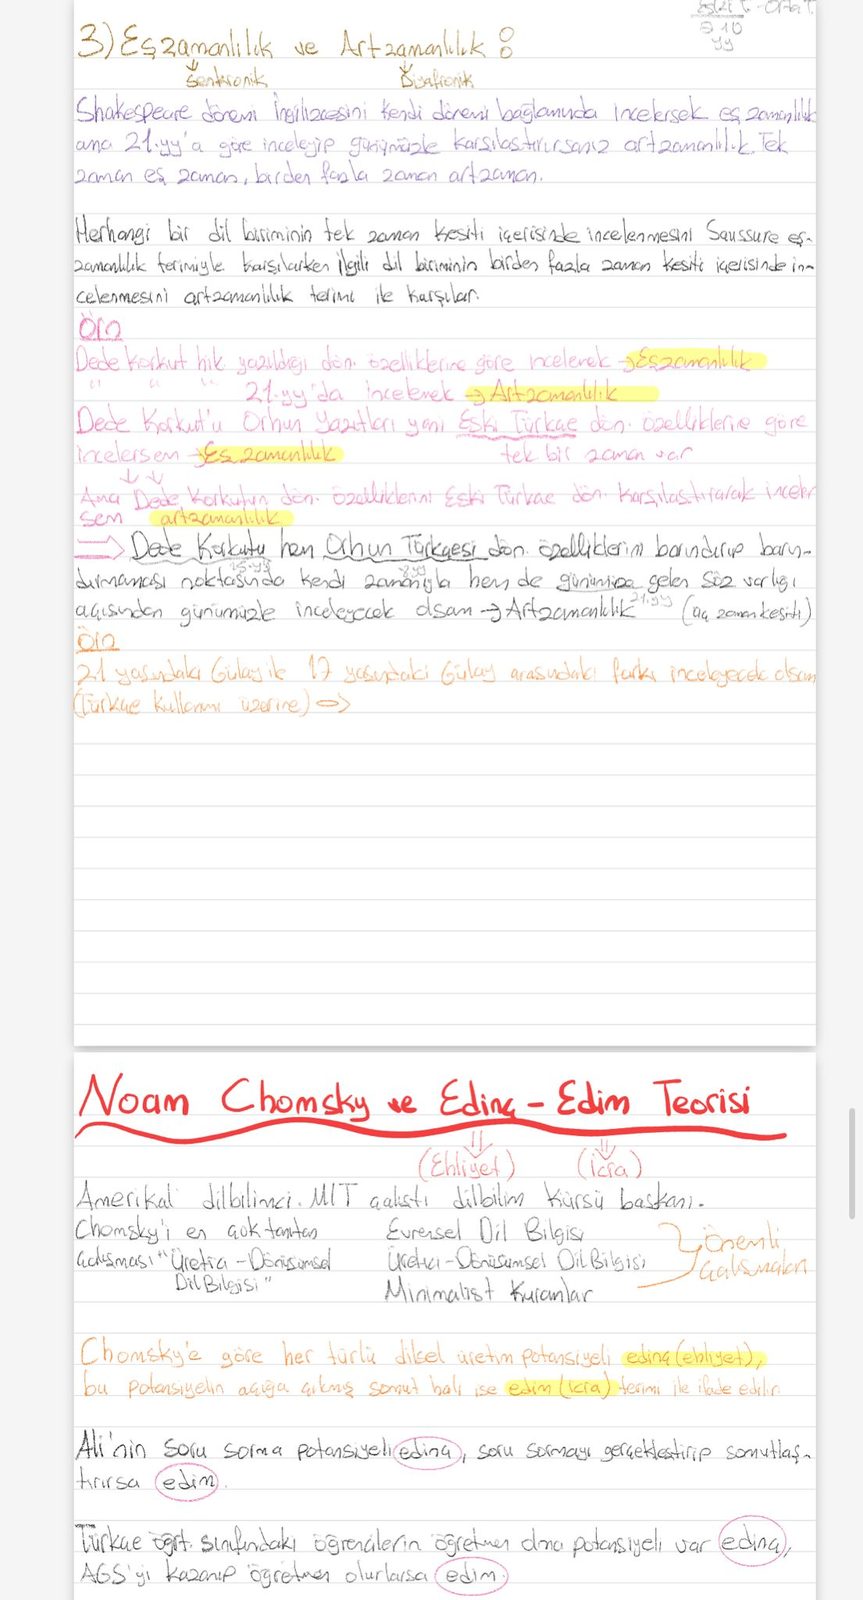 Eski T. - Orta T.
10
yy
3) Eşzamanlılık ve Artzamanlılık :
Senkronik Diyakronik
Shakespeare dönemi İngilizcesini kendi dönemi bağlamında incelersek eş zamanlılık
ama 21.yy'a göre inceleyip günümüzle karşılaştırırsanız artzamanlılık. Tek
zaman eş zaman, birden fazla zaman artzaman.
Herhangi bir dil biriminin tek zaman kesiti içerisinde incelenmesini Saussure eş-
zamanlılık terimiyle karşılarken ilgili dil biriminin birden fazla zaman kesiti içerisinde in-
celenmesini artzamanlılık terimi ile karşılar.
Örn
Dede Korkut hik. yazıldığı dön. özelliklerine göre incelemek → Eşzamanlılık
" " " 21.yy'da incelemek → Artzamanlılık
Dede Korkut'u Orhun Yazıtları yani Eski Türkçe dön. özelliklerine göre
incelersem → Eş zamanlılık tek bir zaman var
Ama Dede Korkutun dön. özelliklerini Eski Türkçe dön. karşılaştırarak inceler
sem artzamanlılık
⇒ Dede Korkutu hem Orhun Türkçesi dön. özelliklerini barındırıp barın-
15.yy 8.yy
durmaması noktasında kendi zamanıyla hem de günümüze gelen söz varlığı
21.yy
açısından günümüzle inceleyecek olsam → Artzamanlılık (üç zaman kesiti)
Örn
21 yaşındaki Gülay ile 17 yaşındaki Gülay arasındaki farkı inceleyecek olsam
(Türkçe kullanımı üzerine) ⇒
Noam Chomsky ve Edinç - Edim Teorisi
(Ehliyet) (İcra)
Amerikalı dilbilimci. MIT çalıştı dilbilim kürsü başkanı.
Chomsky'i en çok tanıtan Evrensel Dil Bilgisi
çalışması "Üretici - Dönüşümsel Üretici - Dönüşümsel Dil Bilgisi
Dil Bilgisi" Minimalist Kuramlar
Önemli
çalışmaları
Chomsky'e göre her türlü dilsel üretim potansiyeli edinç (ehliyet),
bu potansiyelin açığa çıkmış somut hali ise edim (icra) terimi ile ifade edilir.
Ali'nin soru sorma potansiyeli edinç, soru sormayı gerçekleştirip somutlaş-
tırırsa edim.
Türkçe öğrt. sınıfındaki öğrencilerin öğretmen olma potansiyeli var edinç,
AGS'yi kazanıp öğretmen olurlarsa edim.